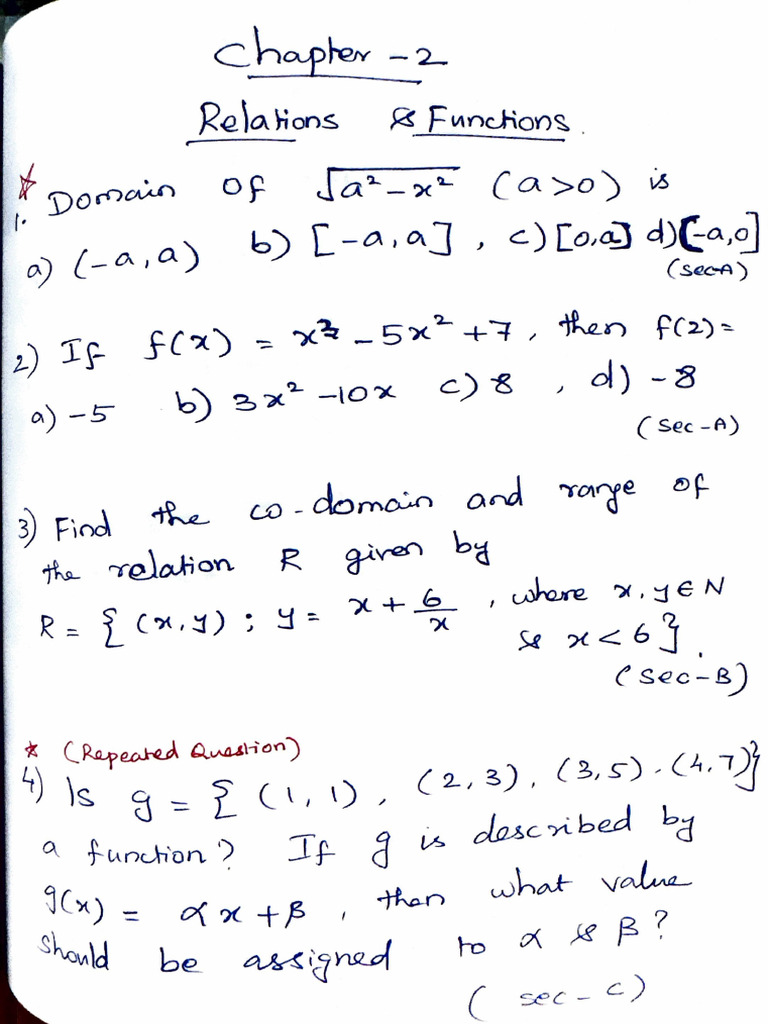 Chapter - 2
Relations & Functions.
* 1. Domain of √a² - x² (a>0) is
a) (-a, a) b) [-a, a], c) [0,a] d) [-a,0]
(sec-A)
2) If f(x) = x³ - 5x² + 7, then f(2) =
a) -5 b) 3x² - 10x c) 8 , d) - 8
(sec-A)
3) Find the co-domain and range of
the relation R given by
R = { (x, y) ; y = x + 6/x , where x, y ∈ N
& x < 6}.
(sec-B)
* (Repeated Question)
4) Is g = { (1, 1), (2, 3), (3, 5), (4, 7)}
a function? If g is described by
g(x) = αx + β, then what value
should be assigned to α & β?
(sec-c)